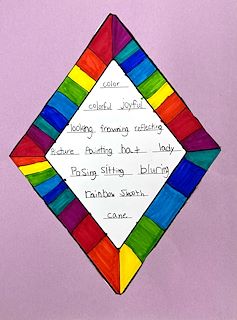 color
colorful joyful
looking frowning reflecting
picture painting hat lady
Posing sitting bluring
rainbow smooth
cane